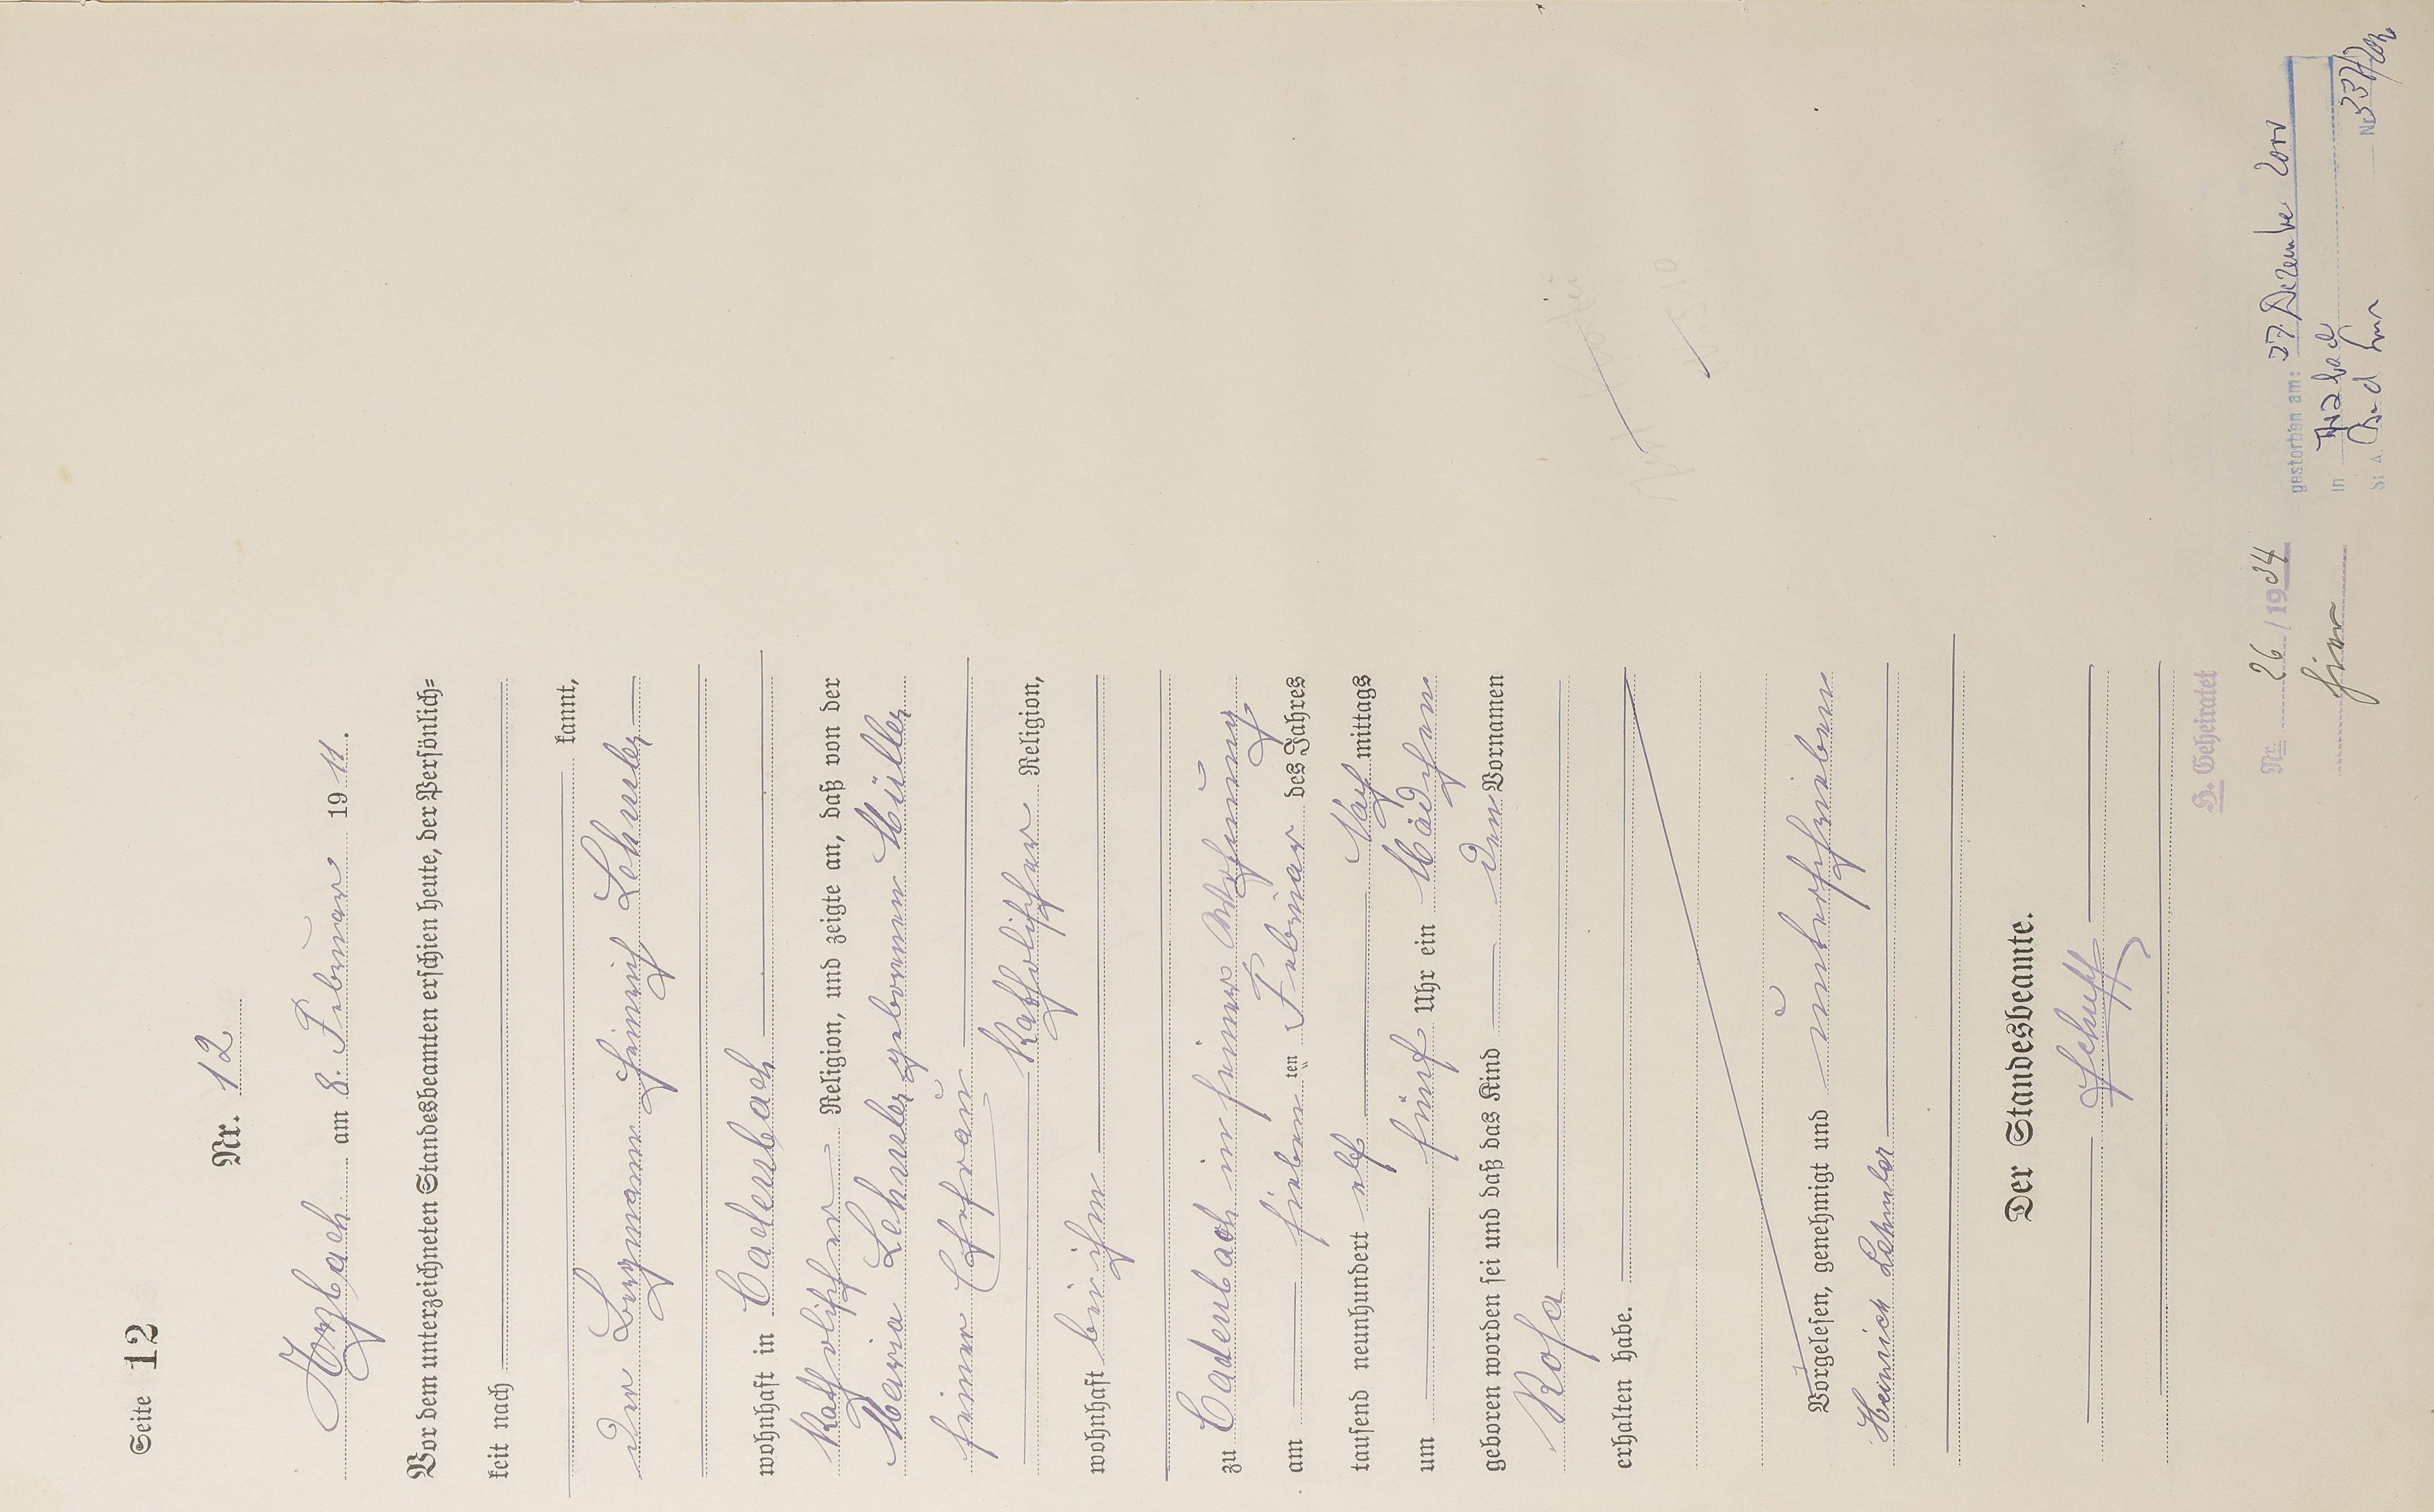 Seite 12
Nr. 12
Arzbach am 8. Februar 19 11.
Vor dem unterzeichneten Standesbeamten erschien heute, der Persönlich=
keit nach
kannt,
der Bergmann Heinrich Lehmler
wohnhaft in Cadenbach
katholischer Religion, und zeigte an, daß von der
Maria Lehmler geborenen Müller
seiner Ehefrau
katholischer Religion,
wohnhaft bei ihm
zu Cadenbach in seiner Wohnung
am sieben ten Februar des Jahres
tausend neunhundert elf Nach mittags
um fünf Uhr ein Mädchen
geboren worden sei und daß das Kind den Vornamen
Rosa
erhalten habe.
Vorgelesen, genehmigt und unterschrieben
Heinrich Lehmler
Der Standesbeamte.
Schupp
H. Geheiratet
Nr. 26 / 1934
hier
gestorben am: 27. Dezember 2011
in Arzbach
St. A. Bad Ems Nr. 337/